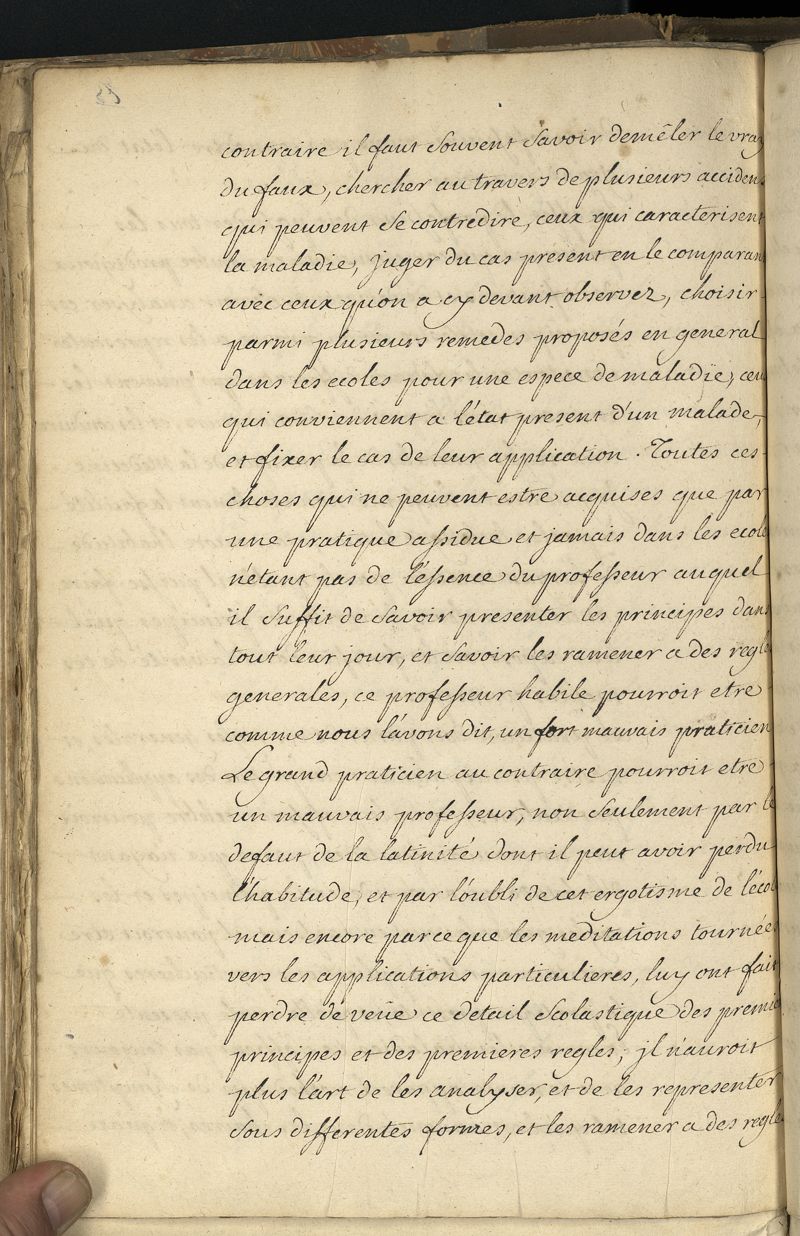 contraire il faut souvent savoir demêler le vray
du faux, chercher au travers de plusieurs acciden
qui peuvent se contredire, ceux qui caracterisent
la maladie, juger du cas present en le comparan
avec ceux qu'on a cy devant observez, choisir
parmi plusieurs remedes proposés en general
dans les ecoles pour une espece de maladie, ceu
qui conviennent a l'état present d'un malade,
et fixer le cas de leur application. Toutes ces
choses qui ne peuvent estre acquises que par
une pratique assidue et jamais dans les ecol
n'etant pas de l'essence du professeur auquel
il suffit de savoir presenter les principes dans
tout leur jour, et savoir les ramener a des regle
generales, ce professeur habile pourroit etre
comme nous l'avons dit, un fort mauvais praticien
Le grand praticien au contraire pourroit etre
un mauvais professeur, non seulement par le
defaut de la latinité dont il peut avoir perdu
l'habitude, et par l'oubli de cet ergotisme de l'écol
mais encore parce que les meditations tournées
vers les applications particulieres, luy ont fait
perdre de veüe ce detail scolastique des premie
principes et des premieres regles, jl n'auroit
plus l'art de les analyser, et de les representer
sous differentes formes, et les ramener a des regle